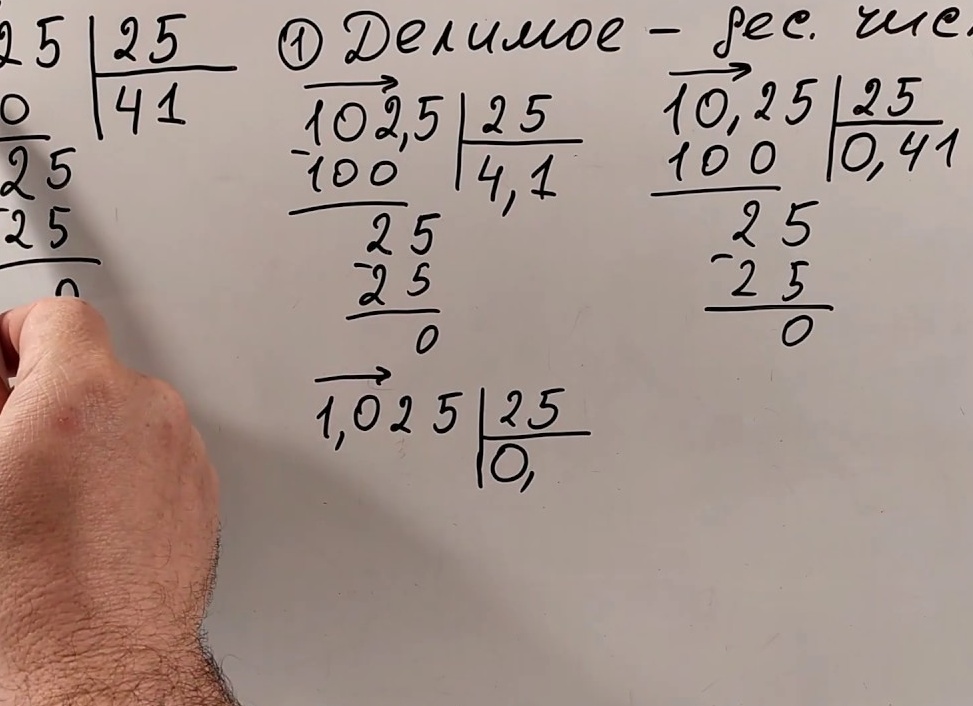 25 25
0 41
25
-25
0
① Делимое – дес. чис.
102,5 25
-100 4,1
25
-25
0
10,25 25
100 0,41
25
-25
0
1,025 25
0,